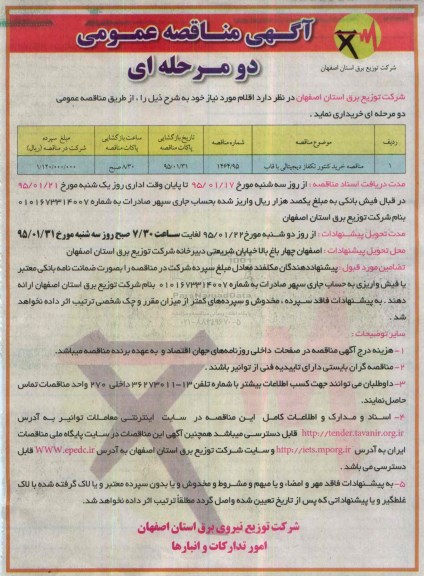 آگهی مناقصه عمومی
دو مرحله ای
شرکت توزیع برق استان اصفهان
شرکت توزیع برق استان اصفهان در نظر دارد اقلام مورد نیاز خود به شرح ذیل را ، از طریق مناقصه عمومی
دو مرحله ای خریداری نماید .
ردیف موضوع مناقصه شماره مناقصه تاریخ بازگشایی پاکات مناقصه ساعت بازگشایی پاکات مناقصه مبلغ سپرده شرکت در مناقصه (ریال)
۱ مناقصه خرید کنتور تکفاز دیجیتالی با قاب ۱۴۶۴/۹۵ ۹۵/۰۱/۳۱ ۷/۳۰ صبح ۱/۱۴۰/۰۰۰/۰۰۰
مدت دریافت اسناد مناقصه : از روز سه شنبه مورخ ۹۵/۰۱/۱۷ تا پایان وقت اداری روز یک شنبه مورخ ۹۵/۰۱/۲۱
در قبال فیش بانکی به مبلغ یکصد هزار ریال واریز شده بحساب جاری سپهر صادرات به شماره ۰۱۰۱۶۷۳۳۱۴۰۰۷
بنام شرکت توزیع برق استان اصفهان
مدت تحویل پیشنهادات : از روز دو شنبه مورخ ۹۵/۰۱/۲۲ لغایت ساعت ۷/۳۰ صبح روز سه شنبه مورخ ۹۵/۰۱/۳۱
محل تحویل پیشنهادات : اصفهان چهار باغ بالا خیابان شریعتی دبیرخانه شرکت توزیع برق استان اصفهان
تضامین مورد قبول : پیشنهاددهندگان مکلفند معادل مبلغ سپرده شرکت در مناقصه را بصورت ضمانت نامه بانکی معتبر
یا فیش واریزی به حساب جاری سپهر صادرات به شماره ۰۱۰۱۶۷۳۳۱۴۰۰۷ بنام شرکت توزیع برق استان اصفهان ارائه
دهند . به پیشنهادات فاقد سپرده ، مخدوش و سپرده‌های کمتر از میزان مقرر و چک شخصی ترتیب اثر داده نخواهد
شد .
سایر توضیحات :
۱- هزینه درج آگهی مناقصه در صفحات داخلی روزنامه‌های جهان اقتصاد و به عهده برنده مناقصه میباشد.
۲- مناقصه گران بایستی دارای تاییدیه فنی از توانیر باشند .
۳- داوطلبان می توانند جهت کسب اطلاعات بیشتر با شماره تلفن ۱۳-۳۶۲۷۳۰۱۱ داخلی ۲۷۰ واحد مناقصات تماس
حاصل نمایند.
۴- اسناد و مدارک و اطلاعات کامل این مناقصه در سایت اینترنتی معاملات توانیر به آدرس
http://tender.tavanir.org.ir قابل دسترسی میباشد همچنین آگهی این مناقصات در سایت پایگاه ملی مناقصات
ایران به آدرس http://iets.mporg.ir و سایت شرکت توزیع برق استان اصفهان به آدرس WWW.epedc.ir قابل
دسترسی می باشد .
۵- به پیشنهادات فاقد مهر و امضاء و یا مبهم و مشروط و مخدوش و یا بدون سپرده معتبر و یا لاک گرفته شده با لاک
غلطگیر و یا پیشنهاداتی که پس از تاریخ تعیین شده واصل گردد مطلقاً ترتیب اثر داده نخواهد شد.
شرکت توزیع نیروی برق استان اصفهان
امور تدارکات و انبارها